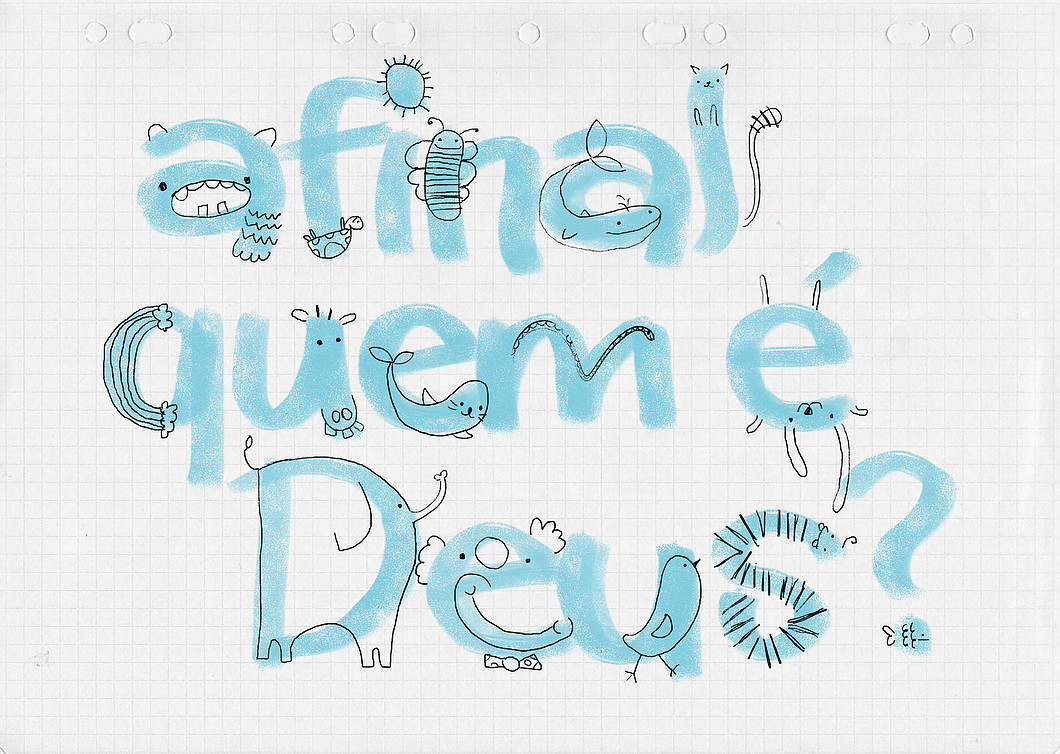 afinal
quem é
Deus?